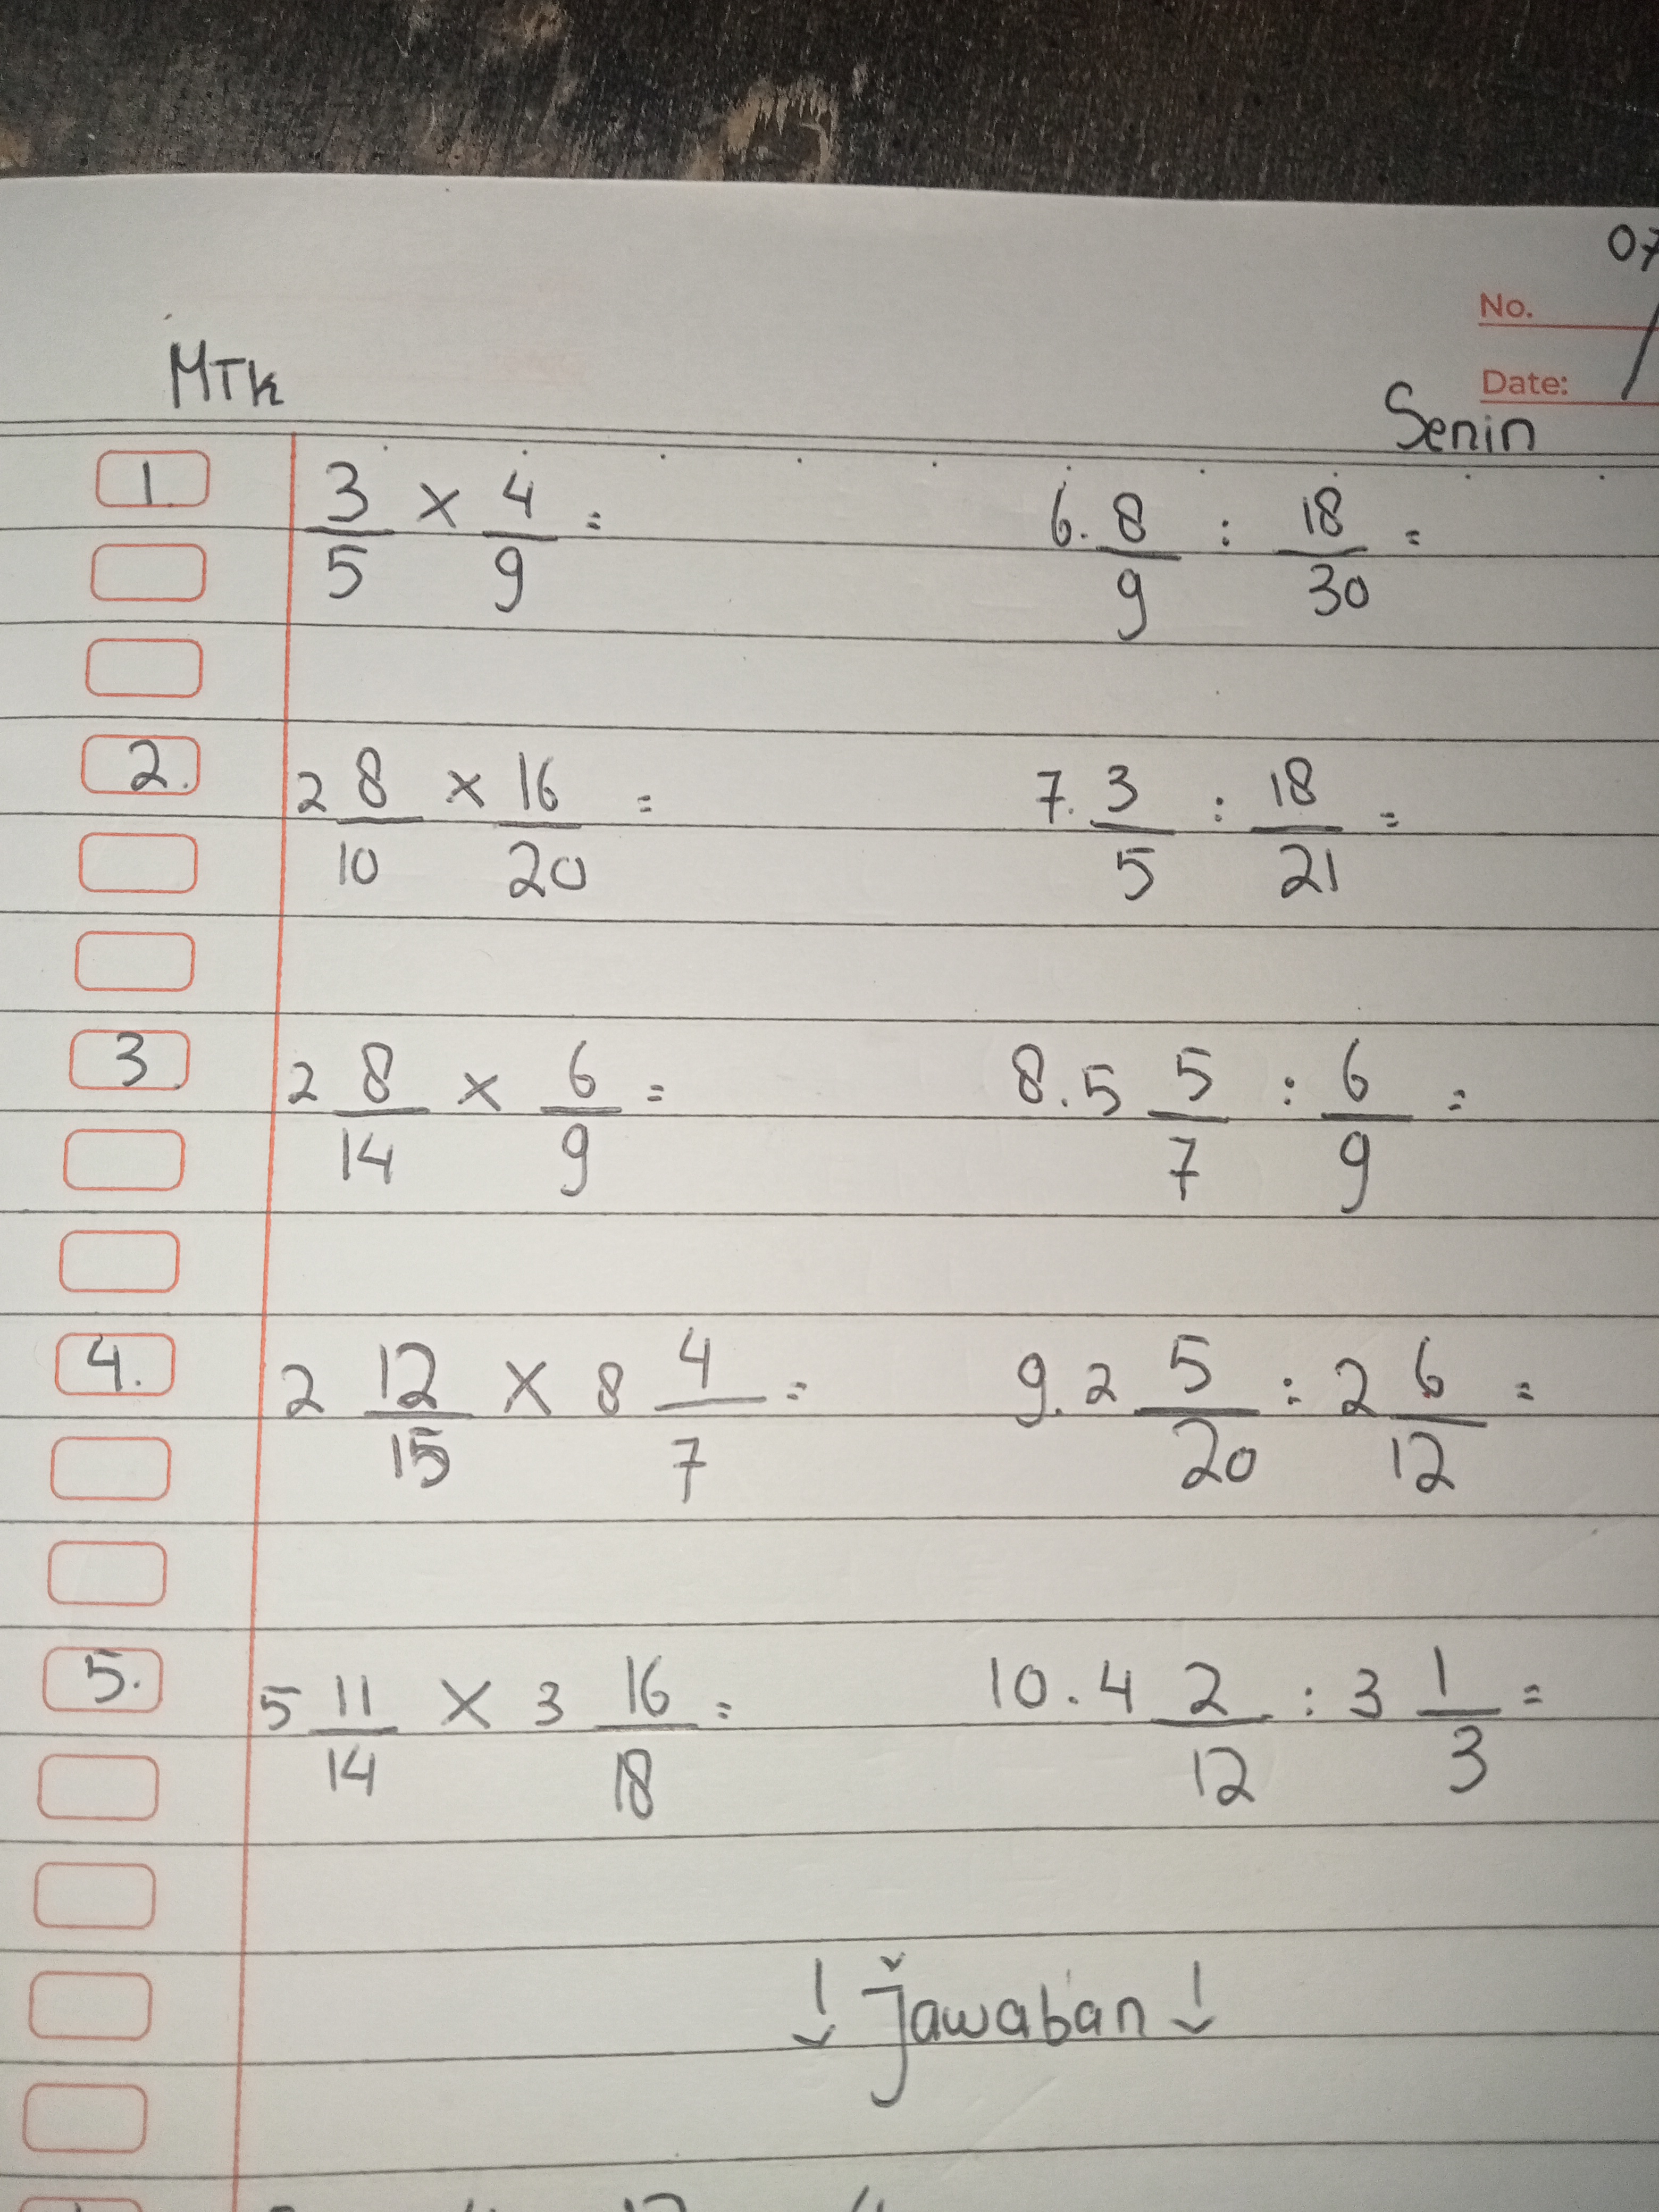 07
No.
MTK
Date:
Senin
1. 3/5 × 4/9 =
6. 8/9 : 18/30 =
2. 2 8/10 × 16/20 =
7. 3/5 : 18/21 =
3. 2 8/14 × 6/9 =
8. 5 5/7 : 6/9 =
4. 2 12/15 × 8 4/7 =
9. 2 5/20 : 2 6/12 =
5. 5 11/14 × 3 16/18 =
10. 4 2/12 : 3 1/3 =
↓ Jawaban ↓